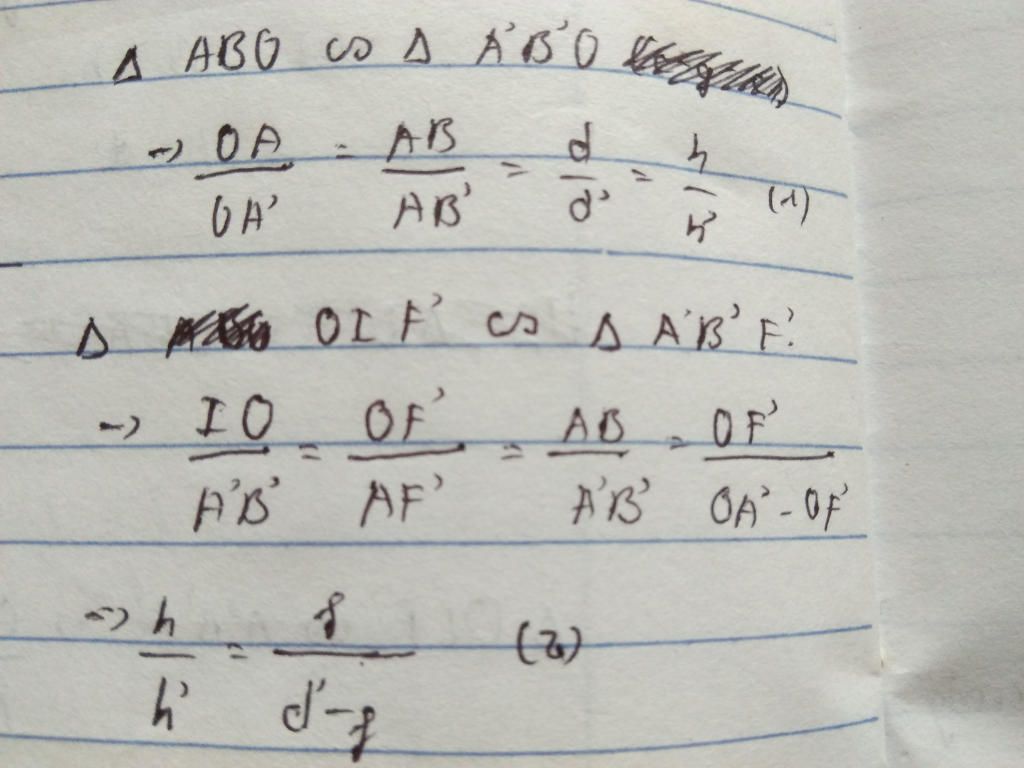 Δ ABO ∽ Δ A'B'O
→ OA/OA' = AB/AB' = d/d' = h/h' (1)
Δ OIF' ∽ Δ A'B'F'
→ IO/A'B' = OF'/AF' = AB/A'B' = OF'/OA'-OF'
→ h/h' = f/d'-f (2)